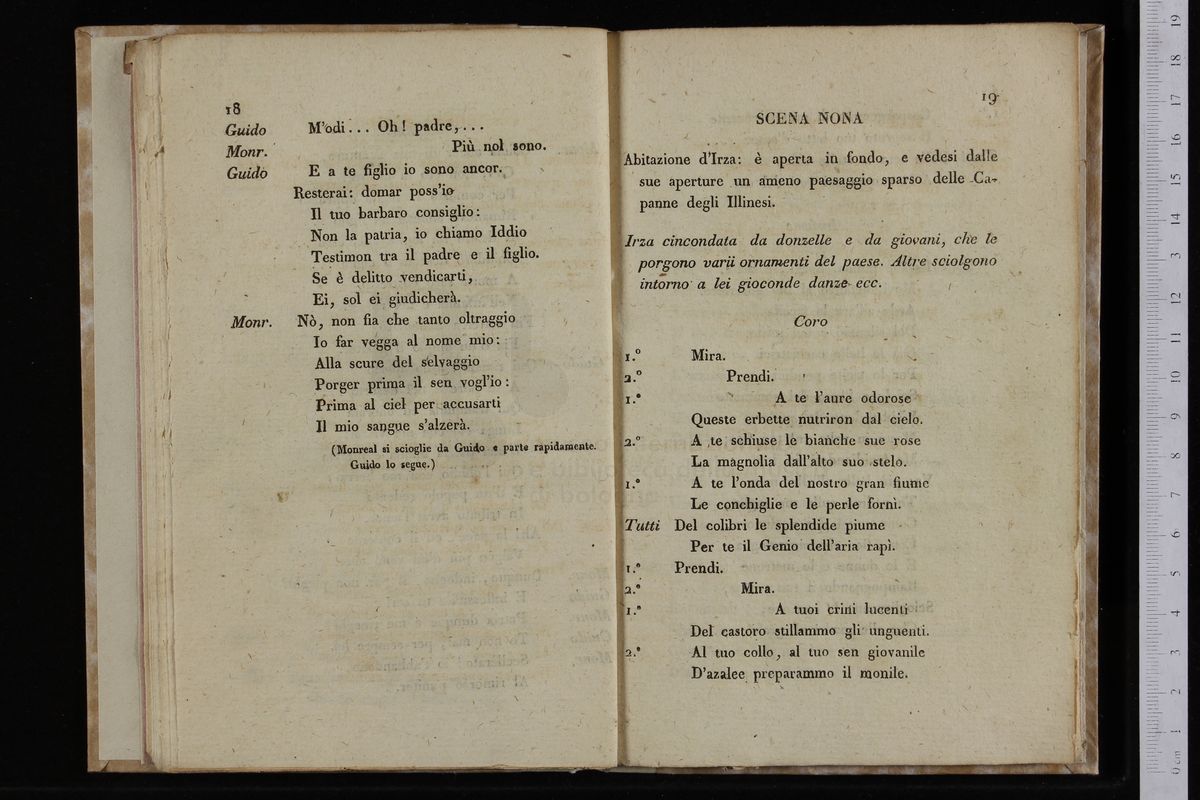 18
Guido M'odi... Oh! padre,...
Monr. Più nol sono.
Guido E a te figlio io sono ancor.
Resterai: domar poss'io
Il tuo barbaro consiglio:
Non la patria, io chiamo Iddio
Testimon tra il padre e il figlio.
Se è delitto vendicarti,
Ei, sol ei giudicherà.
Monr. Nò, non fia che tanto oltraggio
Io far vegga al nome mio:
Alla scure del selvaggio
Porger prima il sen vogl'io:
Prima al ciel per accusarti
Il mio sangue s'alzerà.
(Monreal si scioglie da Guido e parte rapidamente.
Guido lo segue.)
19
SCENA NONA
Abitazione d'Irza: è aperta in fondo, e vedesi dalle
sue aperture un ameno paesaggio sparso delle Ca-
panne degli Illinesi.
Irza cincondata da donzelle e da giovani, che le
porgono varii ornamenti del paese. Altre sciolgono
intorno a lei gioconde danze ecc.
Coro
1.° Mira.
2.° Prendi.
1.° A te l'aure odorose
Queste erbette nutriron dal cielo.
2.° A te schiuse le bianche sue rose
La magnolia dall'alto suo stelo.
1.° A te l'onda del nostro gran fiume
Le conchiglie e le perle fornì.
Tutti Del colibri le splendide piume
Per te il Genio dell'aria rapì.
1.° Prendi.
2.° Mira.
1.° A tuoi crini lucenti
Del castoro stillammo gli unguenti.
2.° Al tuo collo, al tuo sen giovanile
D'azalee preparammo il monile.
0 cm 1 2 3 4 5 6 7 8 9 10 11 12 13 14 15 16 17 18 19